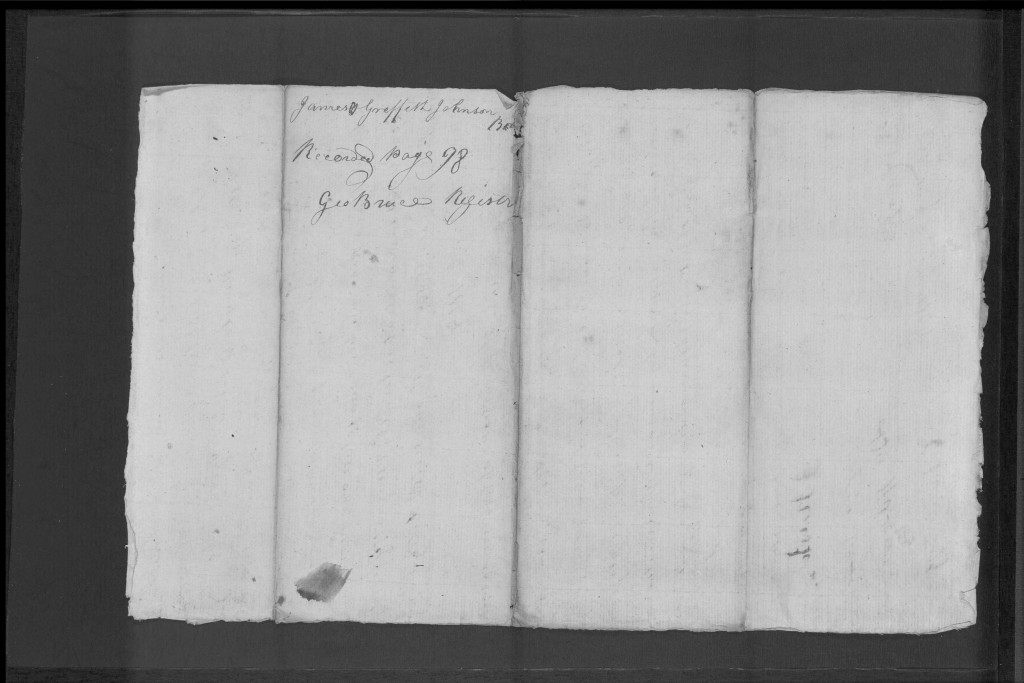 James Greffeth Johnson
Recorded page 98
Geo Bruce Register